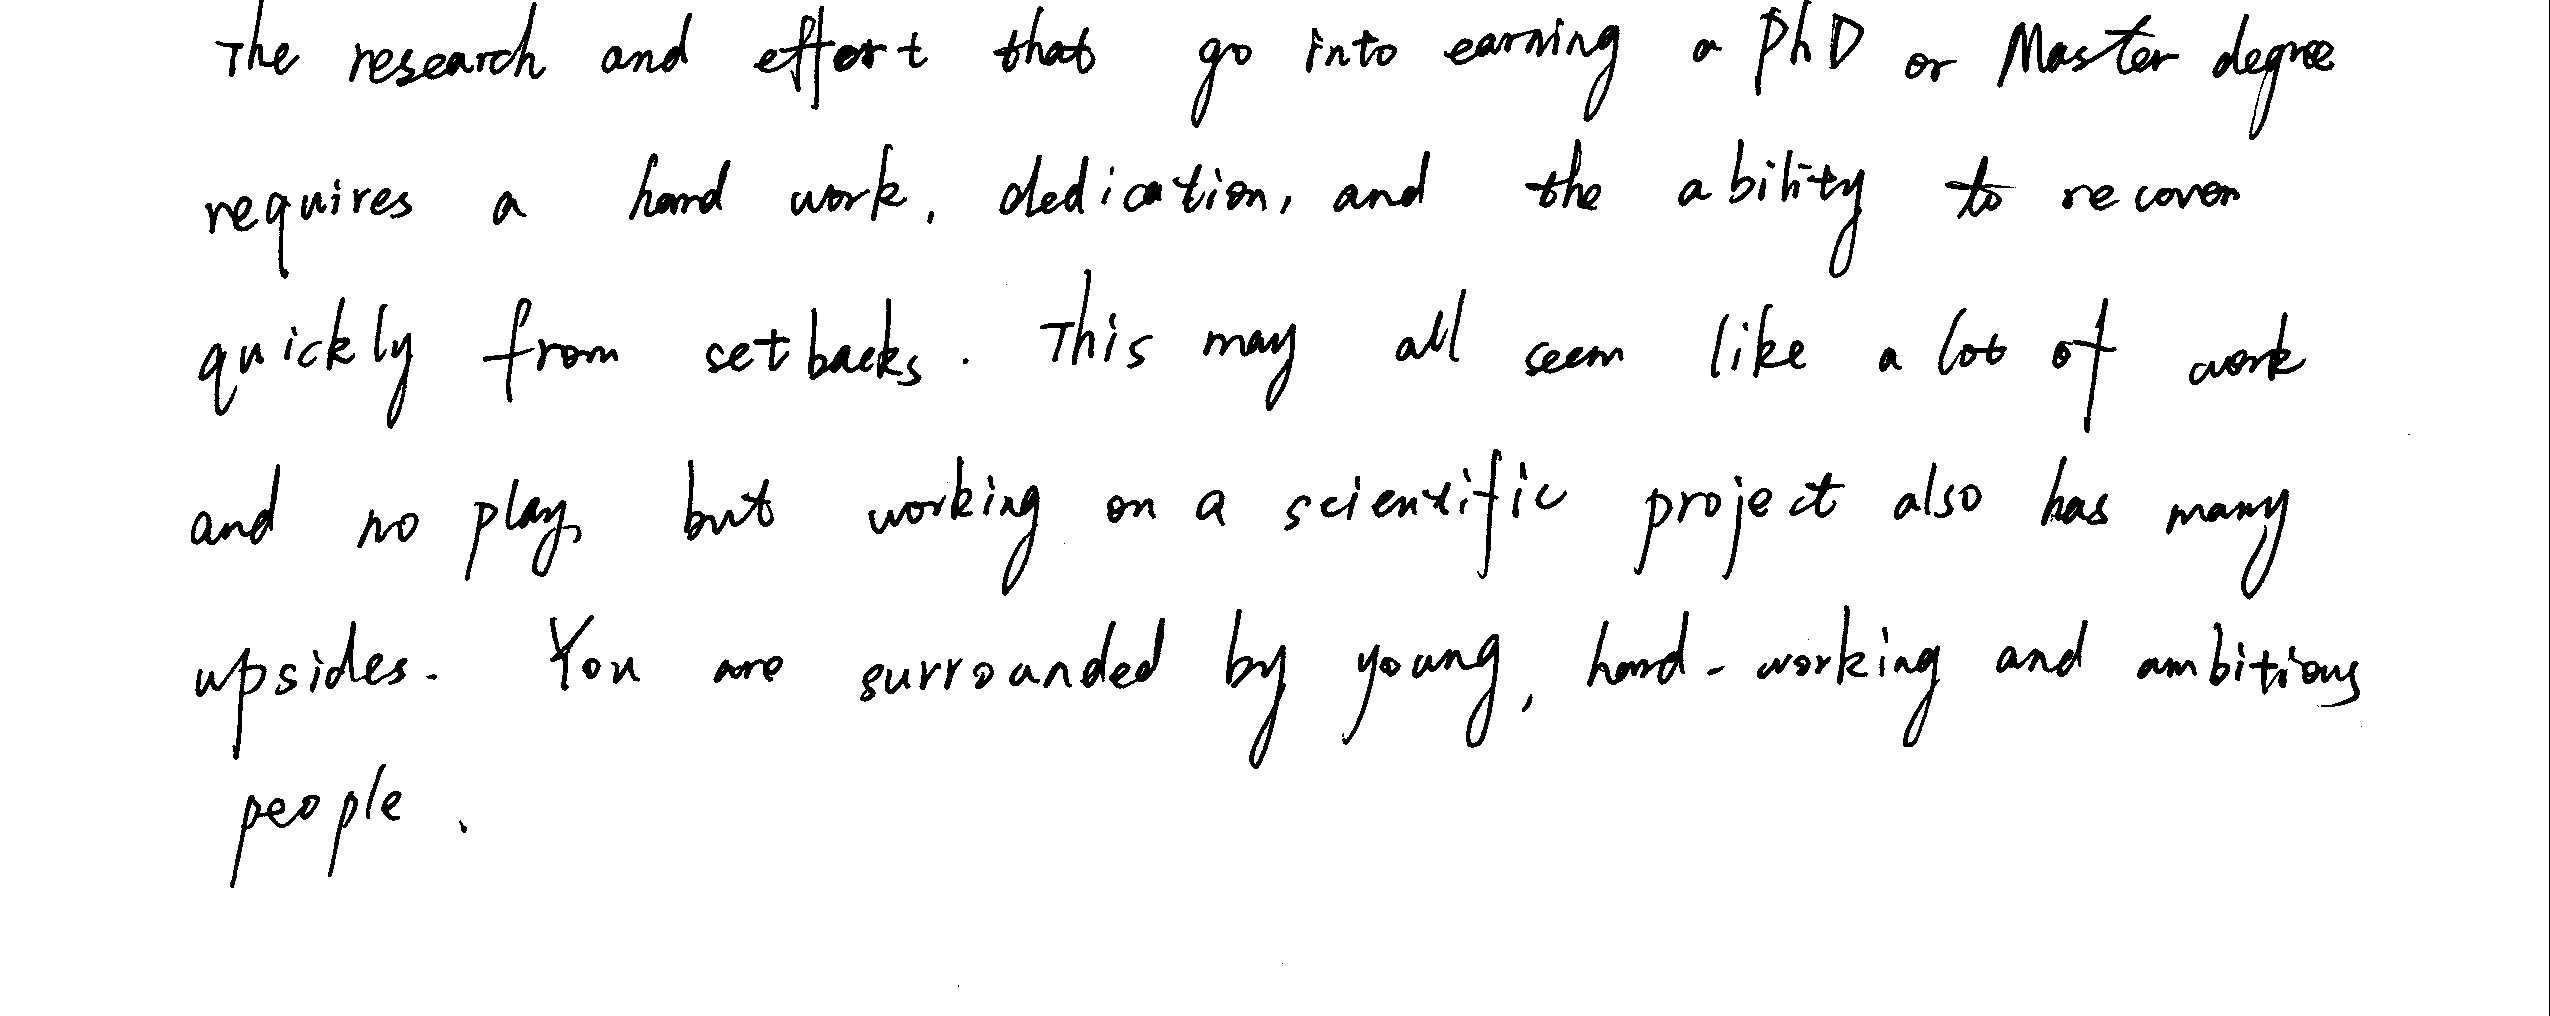 The research and effort that go into earning a PhD or Master degree
requires a hard work, dedication, and the ability to recover
quickly from setbacks. This may all seem like a lot of work
and no play, but working on a scientific project also has many
upsides. You are surrounded by young, hard-working and ambitious
people.